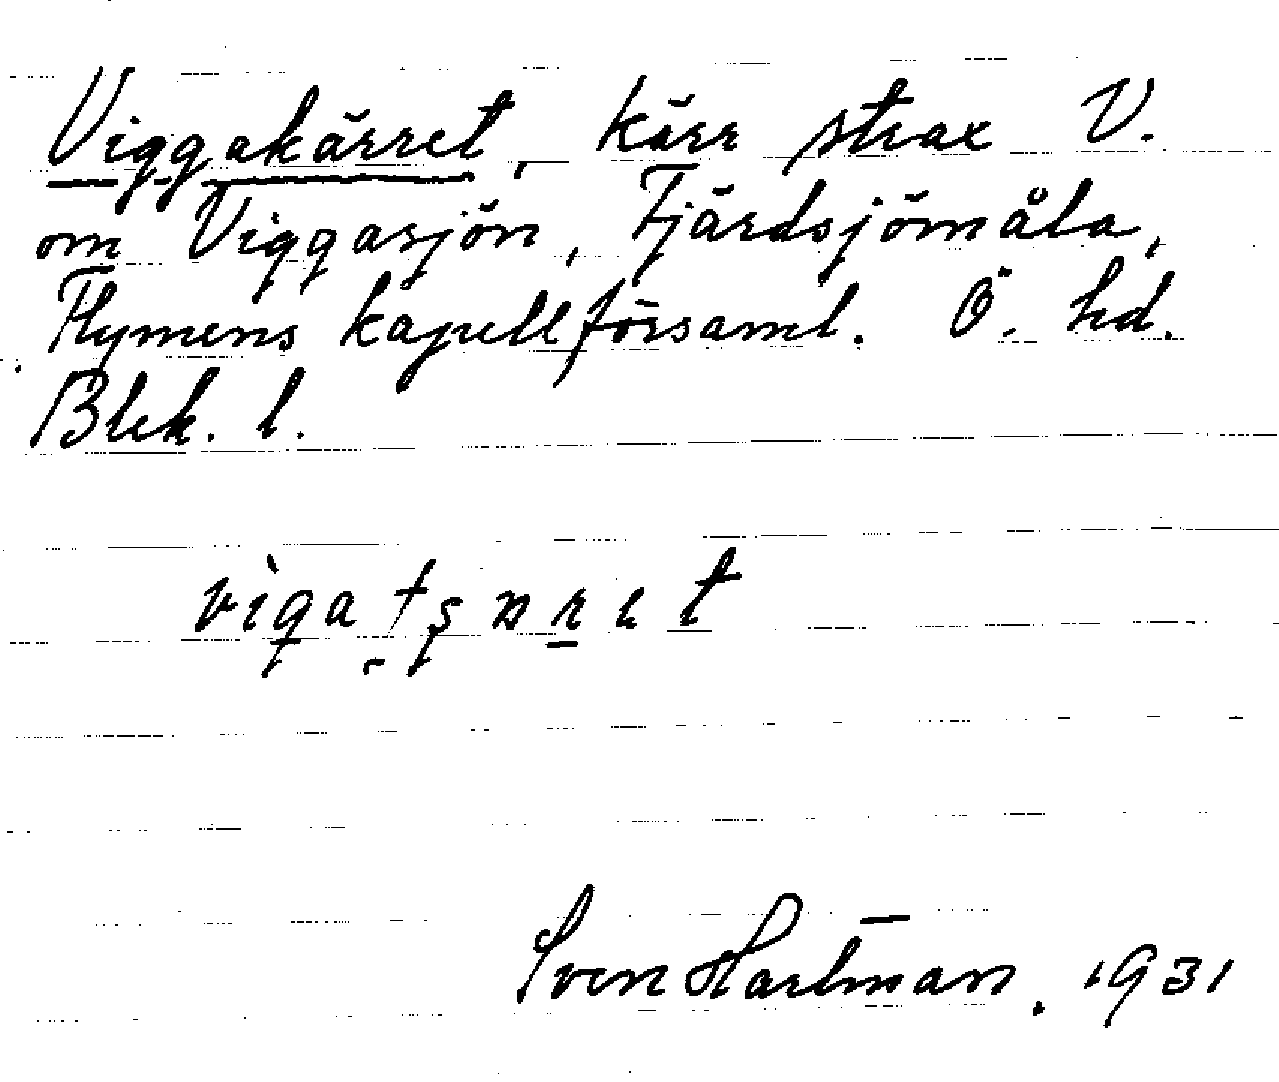 Viggakärret, kärr strax V.
om Viggasjön, Fjärdsjömåla,
Flymens kapellförsaml. Ö. hd.
Blek. l.
Sven Hartman. 1931